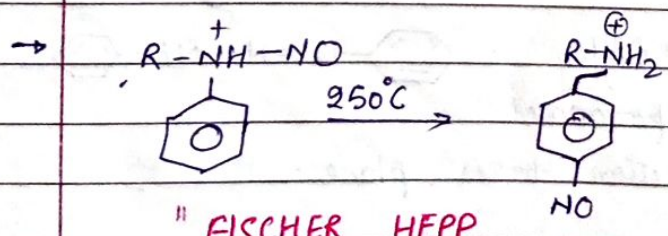 → R-N⁺H-NO 250°C R-N⊕H₂
NO
" FISCHER HEPP